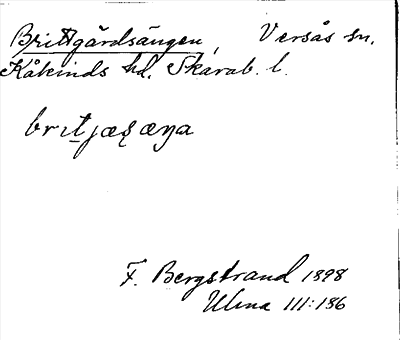 Brittgårdsängen, Versås sn.
Kåkinds hd. Skarab. l.
britjæʂ æŋa
F. Bergstrand 1898
Ulma 111:186